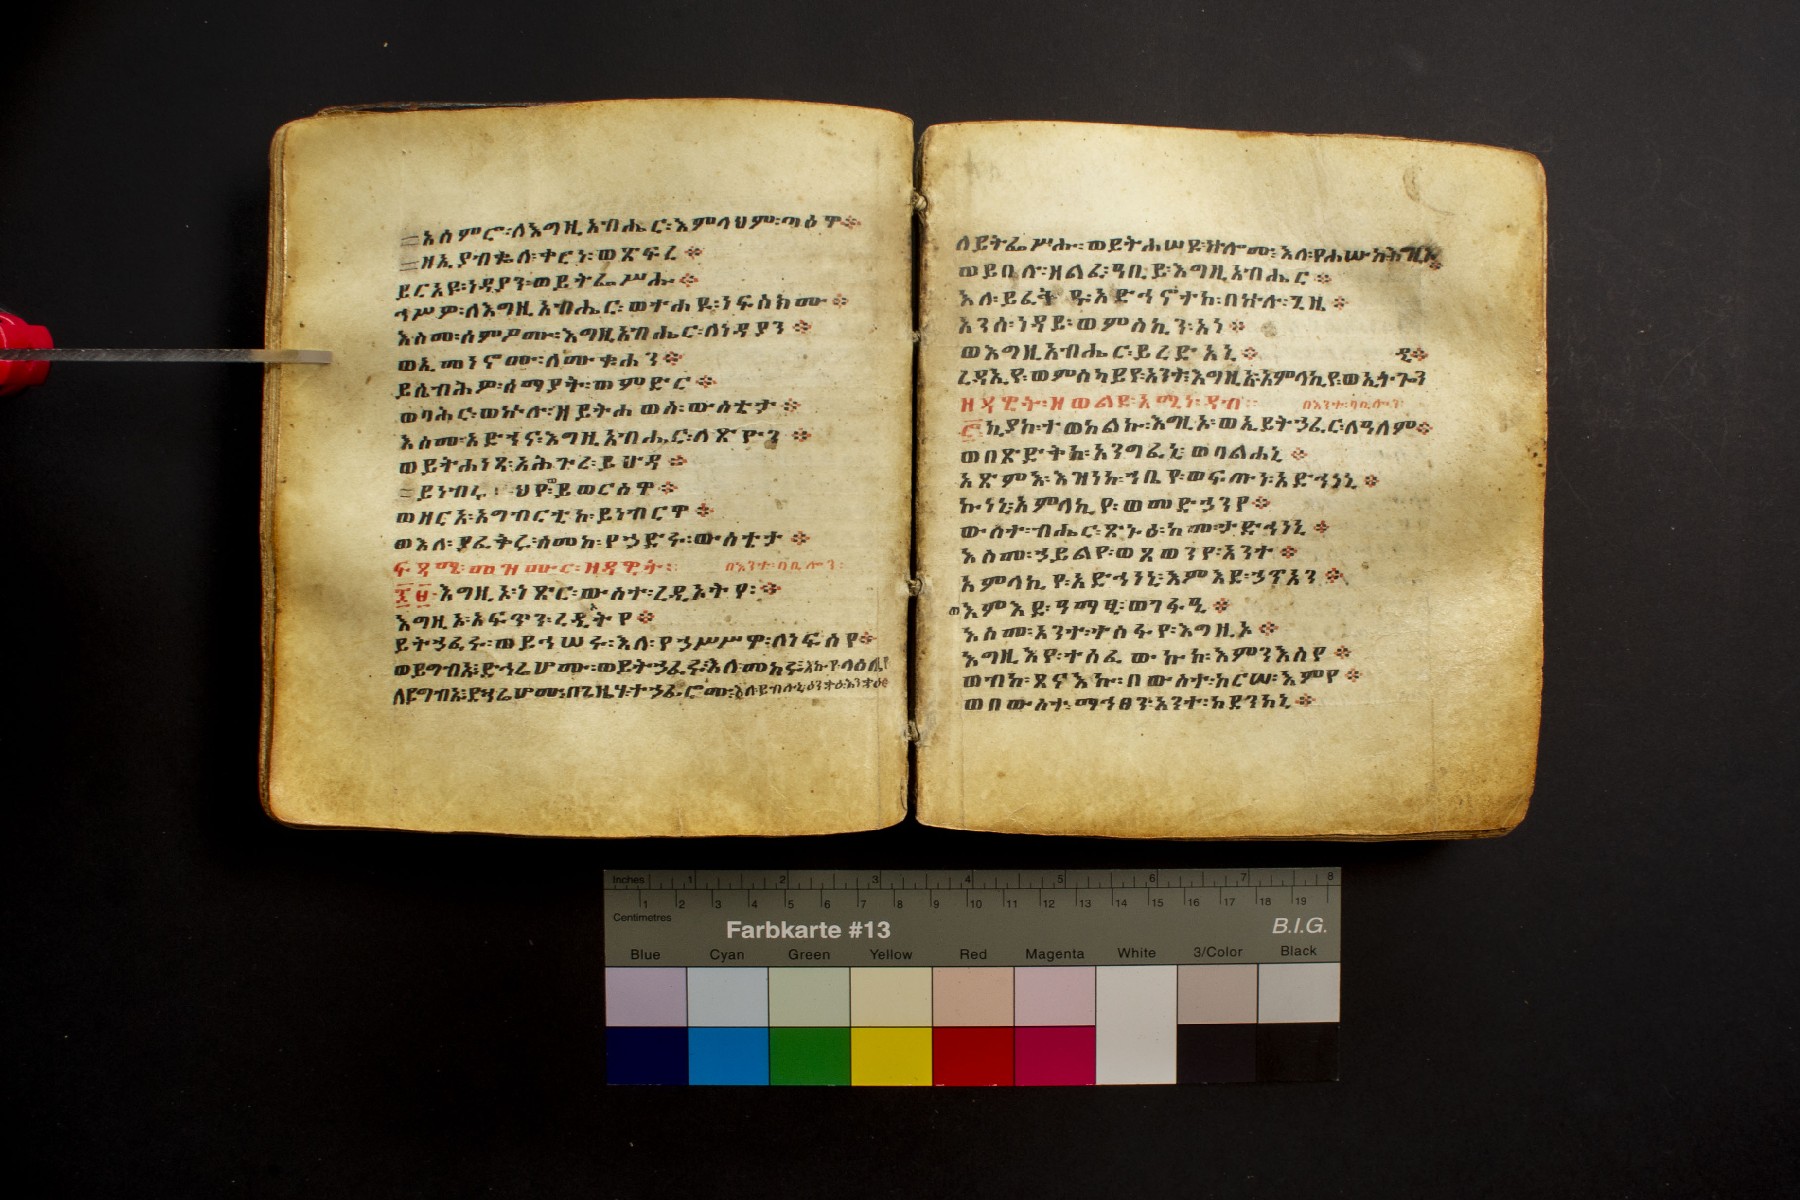 አሰምሮ፡ለእግዚአብሔር፡እምላህም፡ጣዕዋ፨
ዘኢያብቈለ፡ቀርነ፡ወጽፍረ፨
ይርአዩ፡ነዳያን፡ወይትፌሥሑ፨
ኀሥዎ፡ለእግዚአብሔር፡ወተሐዩ፡ነፍስክሙ፨
እስመ፡ሰምዖሙ፡እግዚአብሔር፡ለነዳያን፨
ወኢመነኖሙ፡ለሙቁሐን፨
ይሴብሕዎ፡ሰማያት፡ወምድር፨
ወባሕር፡ወኵሉ፡ዘይትሐወስ፡ውስቴታ፨
እስመ፡አድኀና፡እግዚአብሔር፡ለጽዮን፨
ወይትሐነጻ፡አሕጉረ፡ይሁዳ፨
ይነብሩ፡ህየ፡ይወርስዋ፨
ወዘርአ፡አግብርቲከ፡ይነብርዋ፨
ወእለ፡ያፈቅሩ፡ስመከ፡የኃድሩ፡ውስቴታ፨
ፍጻሜ፡መዝሙር፡ዘዳዊት፡ በእንተ፡ባቢሎን፡
፷፱ እግዚኦ፡ነጽር፡ውስተ፡ረዲኦትየ፡፨
እግዚኦ፡አፍጥን፡ረዲኦትየ፨
ይትኃፈሩ፡ወይኀሠሩ፡እለ፡የኀሥሥዋ፡ለነፍስየ፨
ወይግብኡ፡ድኅሬሆሙ፡ወይትኃፈሩ፡እለ፡መከሩ፡እኩየ፡ላዕሌየ
ለይግብኡ፡ድኅሬሆሙ፡በጊዜሃ፡ተኃፊሮሙ፡እለ፡ይብሉኒ፡ዕንቋዕ፡እንቋዕ
ለይትፌሥሑ፡ወይትሐሠዩ፡ኵሎሙ፡እለ፡የሐሡከ፡እግዚኦ
ወይበሉ፡ዘልፈ፡ዓቢይ፡እግዚአብሔር፨
እለ፡ይፈትዉ፡አድኅኖተከ፡በኵሉ፡ጊዜ፨
አንሰ፡ነዳይ፡ወምስኪን፡አነ፨
ወእግዚአብሔር፡ይረድአኒ፨ ዲ፨
ረዳኢየ፡ወምስካይየ፡አንተ፡እግዚኦ፡አምላኪየ፡ወኢትጐን
ዘዳዊት፡ዘወልደ፡አሚናዳብ፡ በእንተ፡ባቢሎን፡
፸ ኪያከ፡ተወከልኩ፡እግዚኦ፡ወኢይትኃፈር፡ለዓለም፨
ወበጽድቅከ፡አንግፈኒ፡ወባልሐኒ፨
አጽምእ፡እዝነከ፡ኀቤየ፡ወፍጡነ፡አድኅነኒ፨
ኩነኒ፡አምላኪየ፡ወመድኃንየ፨
ውስተ፡ብሔር፡ጽኑዕ፡ከመ፡ታድኅነኒ፨
እስመ፡ኃይልየ፡ወጸወንየ፡አንተ፨
አምላኪየ፡አድኅነኒ፡እምእደ፡ኃጥአን፨
ወእምእደ፡ዓማፂ፡ወገፋዒ፨
እስመ፡አንተ፡ተስፋየ፡እግዚኦ፨
እግዚእየ፡ተሰፈውኩከ፡እምንእስየ፨
ወብከ፡ጸናእኩ፡በውስተ፡ከርሠ፡እምየ፨
ወበውስተ፡ማኅፀን፡አንተ፡ከደንከኒ፨
Inches 1 2 3 4 5 6 7 8
1 2 3 4 5 6 7 8 9 10 11 12 13 14 15 16 17 18 19
Centimetres
Farbkarte #13 B.I.G.
Blue Cyan Green Yellow Red Magenta White 3/Color Black